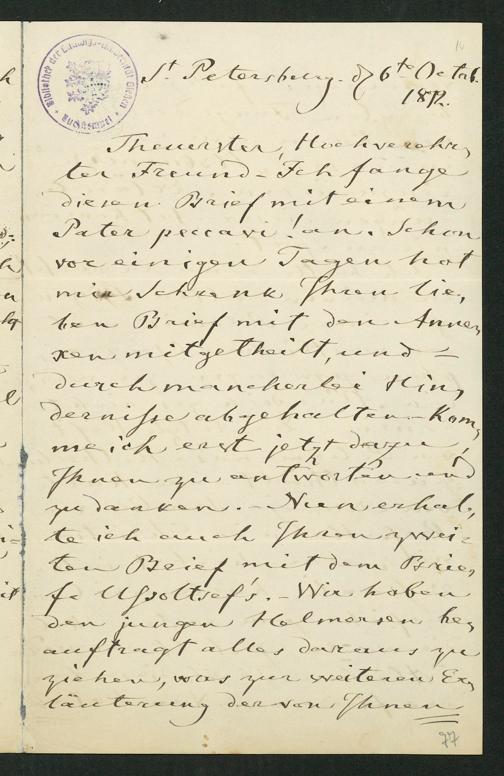 St. Petersburg. d. 6te Octob.
1872.
Theuerster, Hochverehr,
ter Freund – Ich fange
diesen Brief mit einem
Pater peccavi! an. Schon
vor einigen Tagen hat
mir Schrenk Ihren lie,
ben Brief mit den Anne,
xen mitgetheilt, und –
durch mancherlei Hin,
dernisse abgehalten – kom,
me ich erst jetzt dazu,
Ihnen zu antworten und
zu danken. – Nun erhal,
te ich auch Ihren zwei-
ten Brief mit dem Brie,
fe Ussoltsef's. – Wir haben
den jungen Helmersen be,
auftragt alles daraus zu
ziehen, was zur weiteren Er,
läuterung der von Ihnen
77